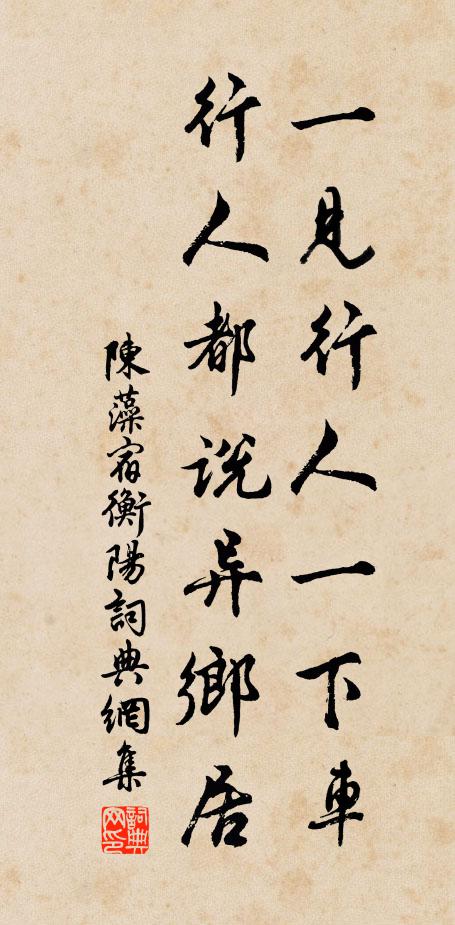 一見行人一下車
行人都说异鄉居
陳藻宿衡陽詞典網集
詞典网印